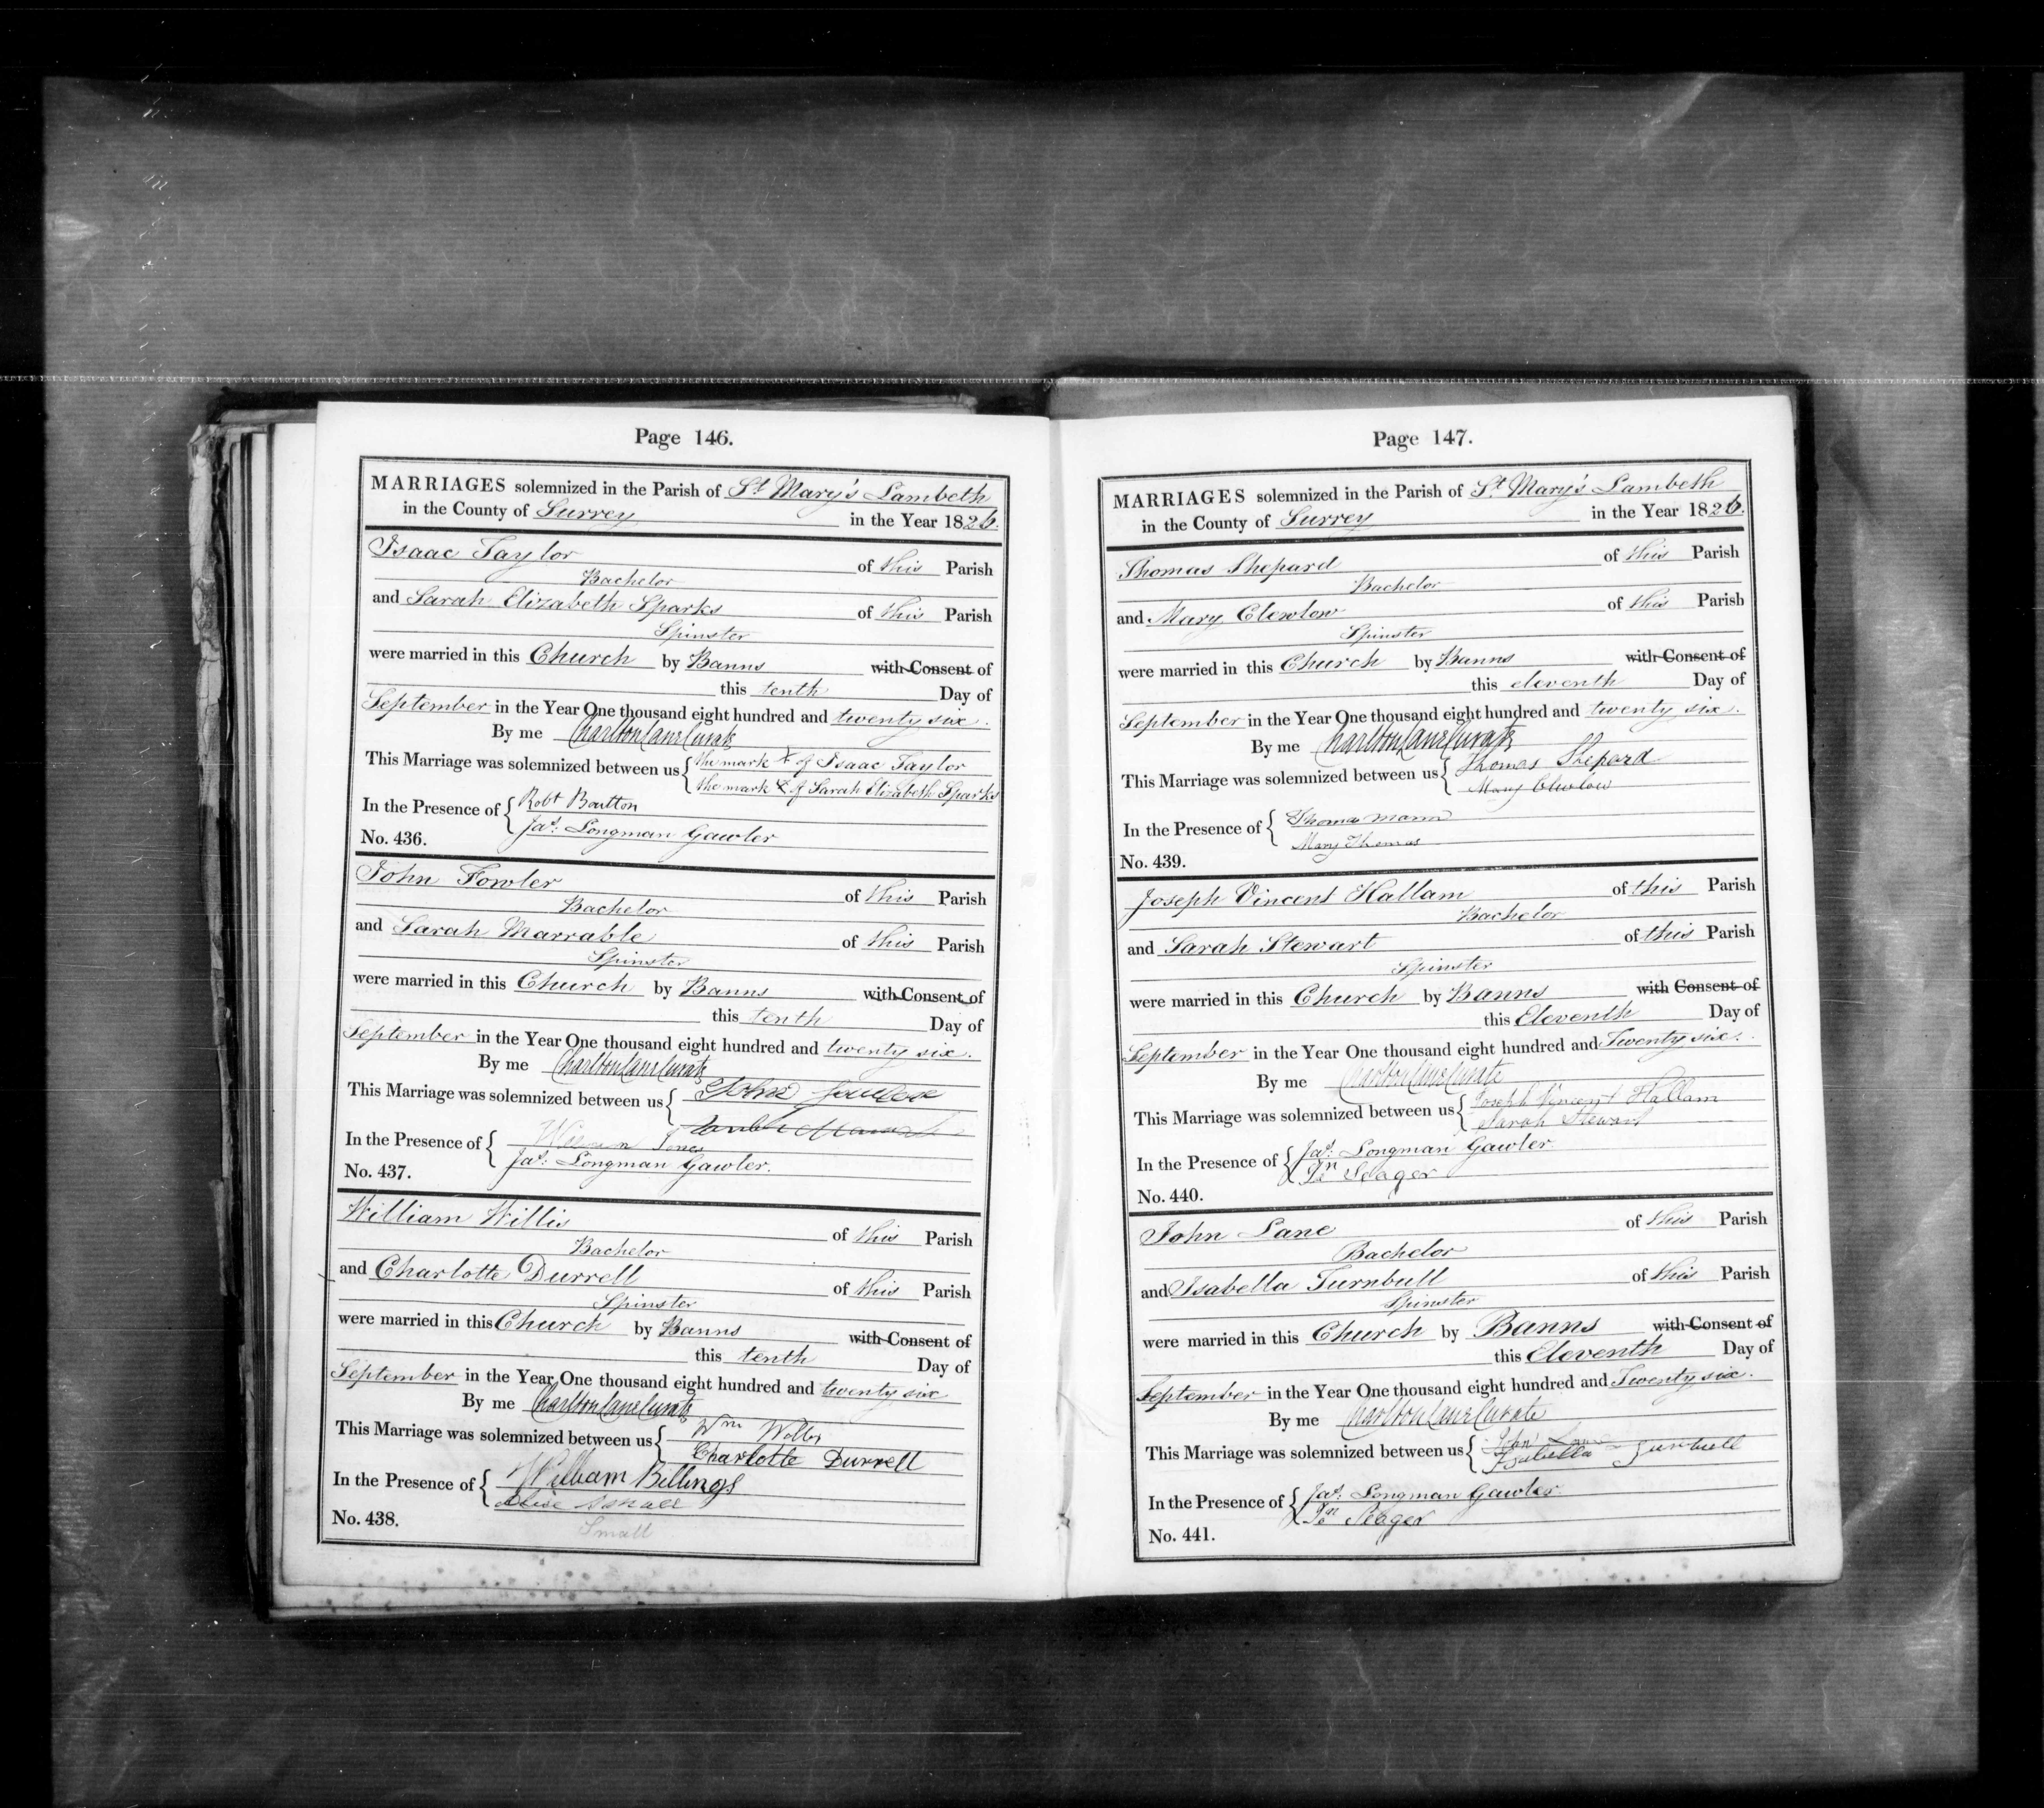 Page 146.
MARRIAGES solemnized in the Parish of St Mary's Lambeth
in the County of Surrey in the Year 1826.
Isaac Taylor of this Parish
Bachelor
and Sarah Elizabeth Sparks of this Parish
Spinster
were married in this Church by Banns with Consent of
this tenth Day of
September in the Year One thousand eight hundred and twenty six.
By me Charlton Lane Curate
This Marriage was solemnized between us { the mark X of Isaac Taylor
the mark X of Sarah Elizabeth Sparks
In the Presence of { Robt Boulton
Jas: Longman Gawler
No. 436.
John Fowler of this Parish
Bachelor
and Sarah Marrable of this Parish
Spinster
were married in this Church by Banns with Consent of
this tenth Day of
September in the Year One thousand eight hundred and twenty six.
By me Charlton Lane Curate
This Marriage was solemnized between us { John
In the Presence of { Jones
Jas: Longman Gawler.
No. 437.
William Willis of this Parish
Bachelor
and Charlotte Durrell of this Parish
Spinster
were married in this Church by Banns with Consent of
this tenth Day of
September in the Year One thousand eight hundred and twenty six
By me Charlton Lane Curate
This Marriage was solemnized between us { Wm
Charlotte Durrell
In the Presence of { William Billings
Small
No. 438.
Small
Page 147.
MARRIAGES solemnized in the Parish of St Mary's Lambeth
in the County of Surrey in the Year 1826.
Thomas Shepard of this Parish
Bachelor
and Mary Clewlow of this Parish
Spinster
were married in this Church by Banns with Consent of
this eleventh Day of
September in the Year One thousand eight hundred and twenty six.
By me Charlton Lane Curate
This Marriage was solemnized between us { Thomas Shepard
Mary Clewlow
In the Presence of { Thomas Mann
Mary Thomas
No. 439.
Joseph Vincent Hallam of this Parish
Bachelor
and Sarah Stewart of this Parish
Spinster
were married in this Church by Banns with Consent of
this Eleventh Day of
September in the Year One thousand eight hundred and Twenty six.
By me Charlton Lane Curate
This Marriage was solemnized between us { Joseph Vincent Hallam
Sarah Stewart
In the Presence of { Jas: Longman Gawler
Seager
No. 440.
John Lane of this Parish
Bachelor
and Isabella Turnbull of this Parish
Spinster
were married in this Church by Banns with Consent of
this Eleventh Day of
September in the Year One thousand eight hundred and Twenty six.
By me Charlton Lane Curate
This Marriage was solemnized between us { John Lane
Isabella Turnbull
In the Presence of { Jas: Longman Gawler
Seager
No. 441.